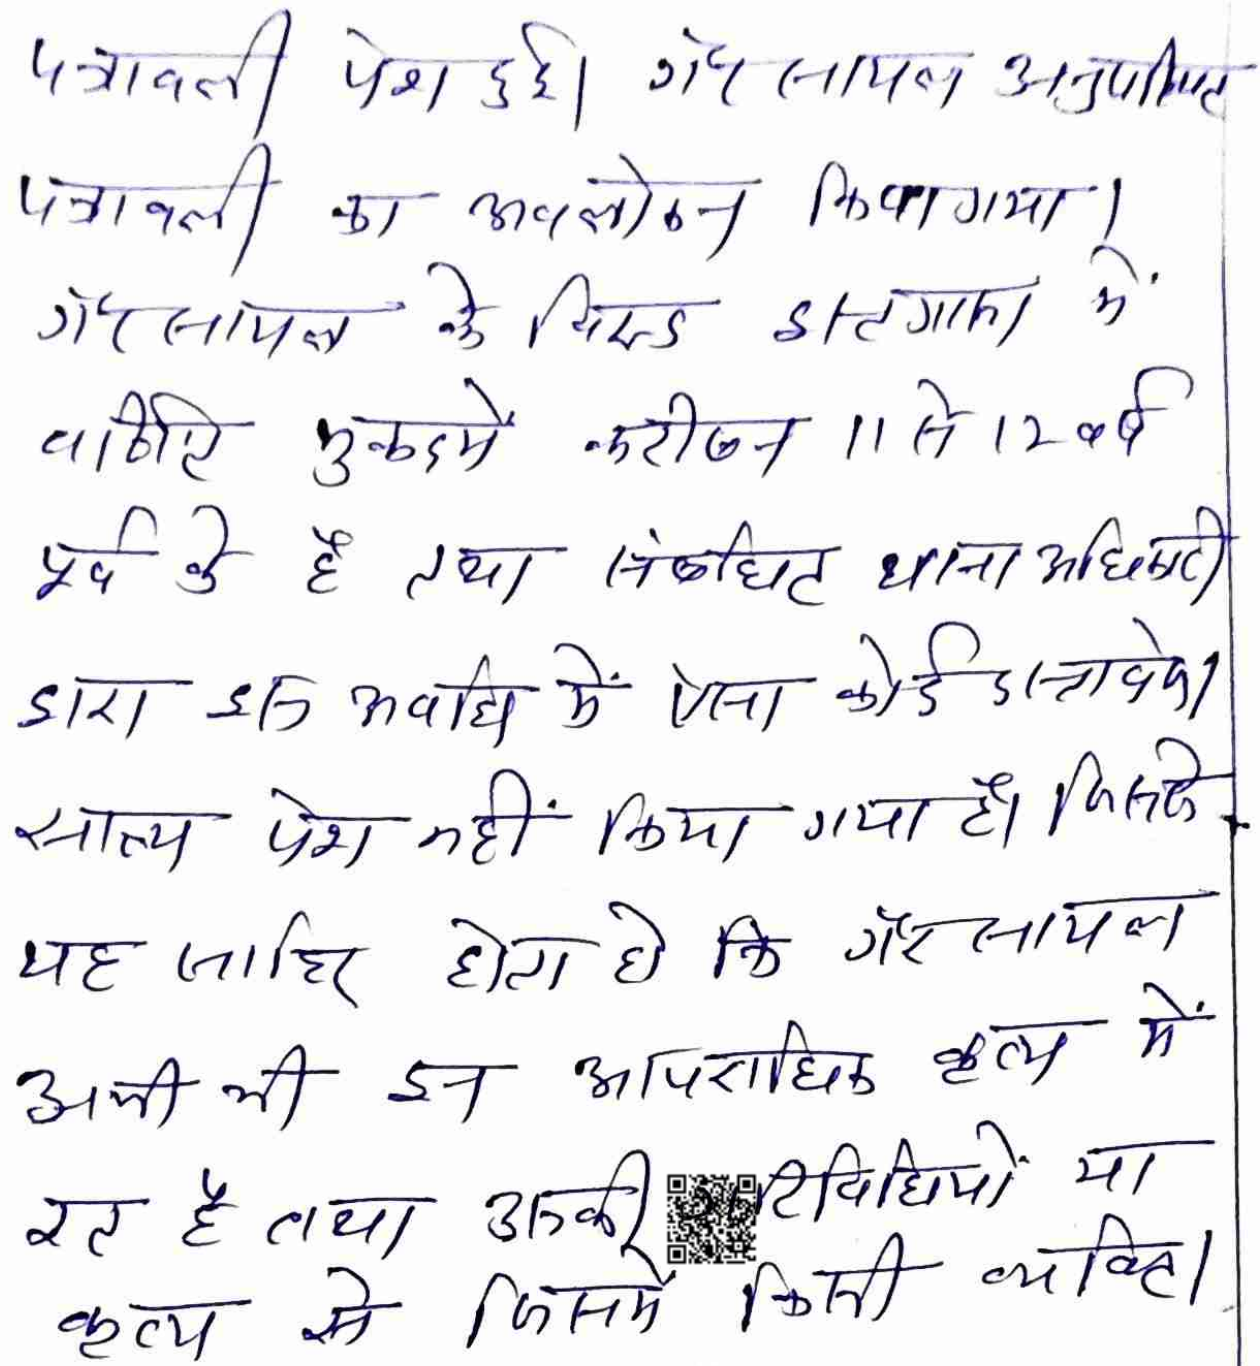 पत्रावली पेश हुई। गैर सायल अनुपस्थित
पत्रावली का अवलोकन किया गया।
गैर सायल के विरूद्ध इस्तगासा में
वर्णित मुकदमें करीबन 11 से 12 वर्ष
पूर्व के है तथा संबंधित थाना अधिकारी
द्वारा इस अवधि में ऐसा कोई दस्तावेज।
साक्ष्य पेश नहीं किया गया है। जिससे
यह जाहिर होता है कि गैर सायल
अभी भी इन आपराधिक कृत्य में
रत है तथा उसकी तिविधियों या
कृत्य से जिसमें किसी व्यक्ति।